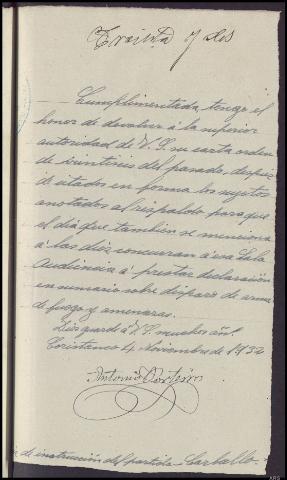 Treinta y dos
Cumplimentada, tengo el
honor de devolver á la superior
autoridad de V.S. su carta orden
de veintiseis del pasado, despues
de citados en forma los sujetos
anotados al respaldo para que
el dia que tambien se menciona
á las diez concurran á esa Sala
Audiencia á prestar declaración
en sumario sobre disparo de arma
de fuego y amenazas.
Dios guarde á V.S. muchos añs.
Coristanco 4 Noviembre de 1932
Antonio
de instrucción del partido - Carballo.
ARS